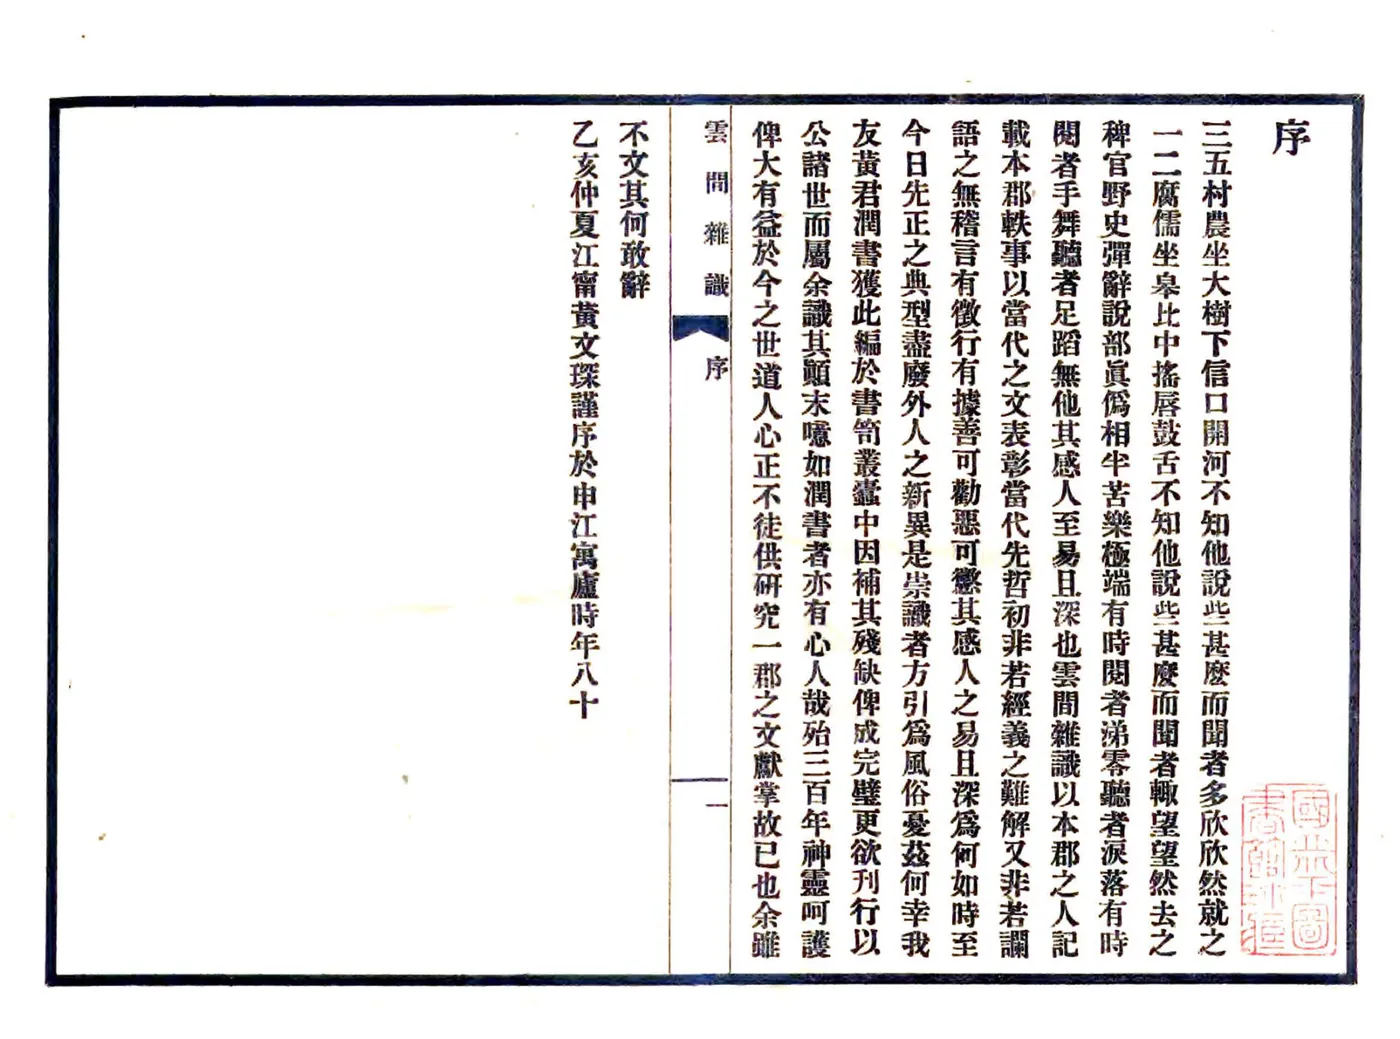 序
三五村農坐大樹下信口開河不知他說些甚麽而聞者多欣欣然就之
一二腐儒坐皋比中搖唇鼓舌不知他說些甚麽而聞者輙望望然去之
稗官野史彈辭說部眞僞相半苦樂極端有時閱者涕零聽者淚落有時
閱者手舞聽者足蹈無他其感人至易且深也雲間雜識以本郡之人記
載本郡軼事以當代之文表彰當代先哲初非若經義之難解又非若讕
語之無稽言有徵行有據善可勸惡可懲其感人之易且深爲何如時至
今日先正之典型盡廢外人之新異是崇識者方引爲風俗憂茲何幸我
友黃君潤書獲此編於書笥叢蠹中因補其殘缺俾成完璧更欲刋行以
公諸世而屬余識其顚末噫如潤書者亦有心人哉殆三百年神靈呵護
俾大有益於今之世道人心正不徒供研究一郡之文獻掌故已也余雖
雲間雜識
序
一
不文其何敢辭
乙亥仲夏江甯黃文琛謹序於申江寓廬時年八十